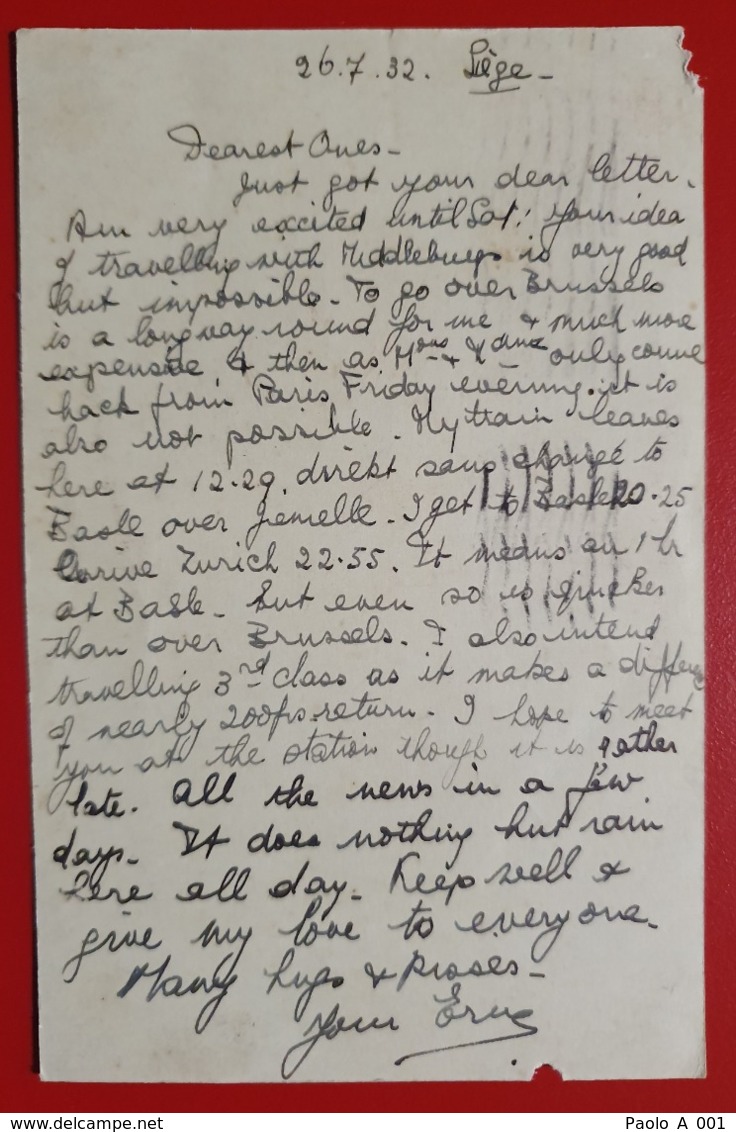 26.7.32. Liège -
Dearest Ones -
Just got your dear letter.
Am very excited until Sat! Your idea
of travelling with Middleburgs is very good
but impossible. To go over Brussels
is a long way round for me & much more
expensive & then as Mons & only come
back from Paris Friday evening it is
also not possible. My train leaves
here at 12.29. direkt sans change to
Basle over Jemelle. I get to Basle 20.25
& arrive Zurich 22.55. It means an 1 hr
at Basle - but even so is quicker
than over Brussels. I also intend
travelling 3rd class as it makes a
of nearly 200frs return. I hope to meet
you at the station though it is rather
late. All the news in a few
days. It does nothing but rain
here all day. Keep well &
give my love to everyone.
Many hugs & kisses -
Your
delcampe.net
Paolo A 001